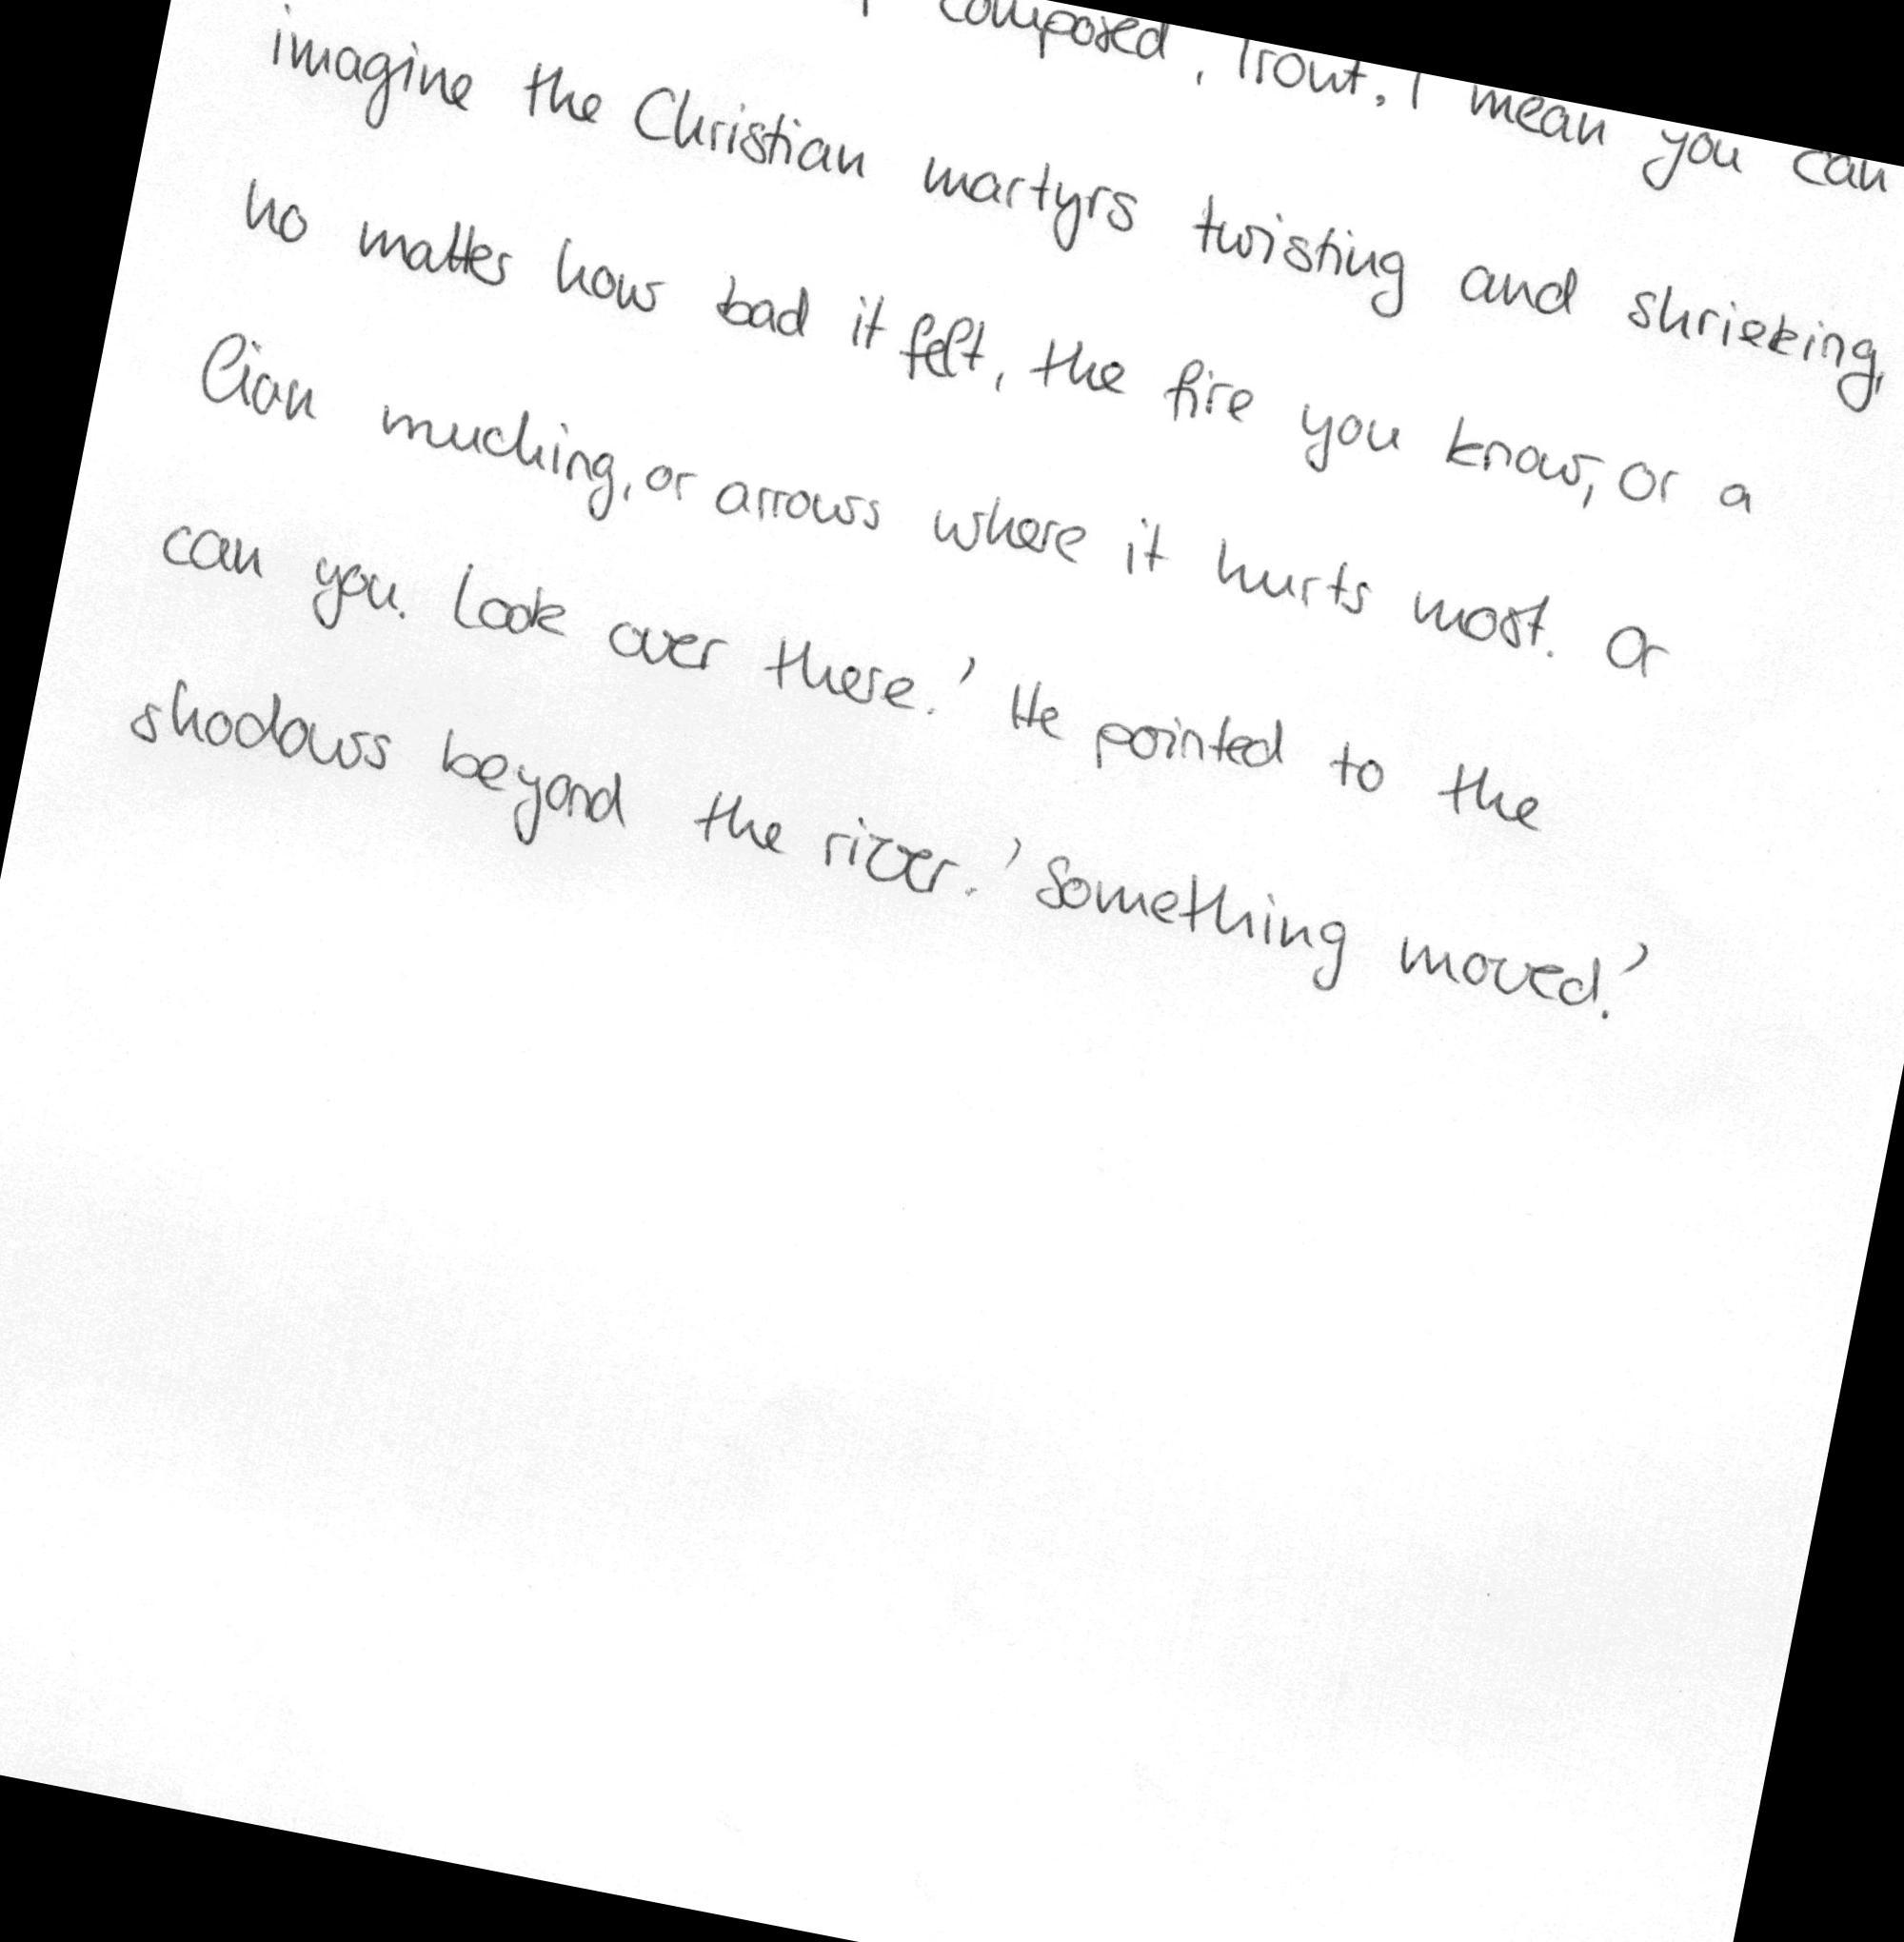 composed, Trout. I mean you can
imagine the Christian martyrs twisting and shrieking,
no matter how bad it felt, the fire you know, or a
lion muching, or arrows where it hurts most. Or
can you. Look over there.' He pointed to the
shadows beyond the river. 'Something moved.'